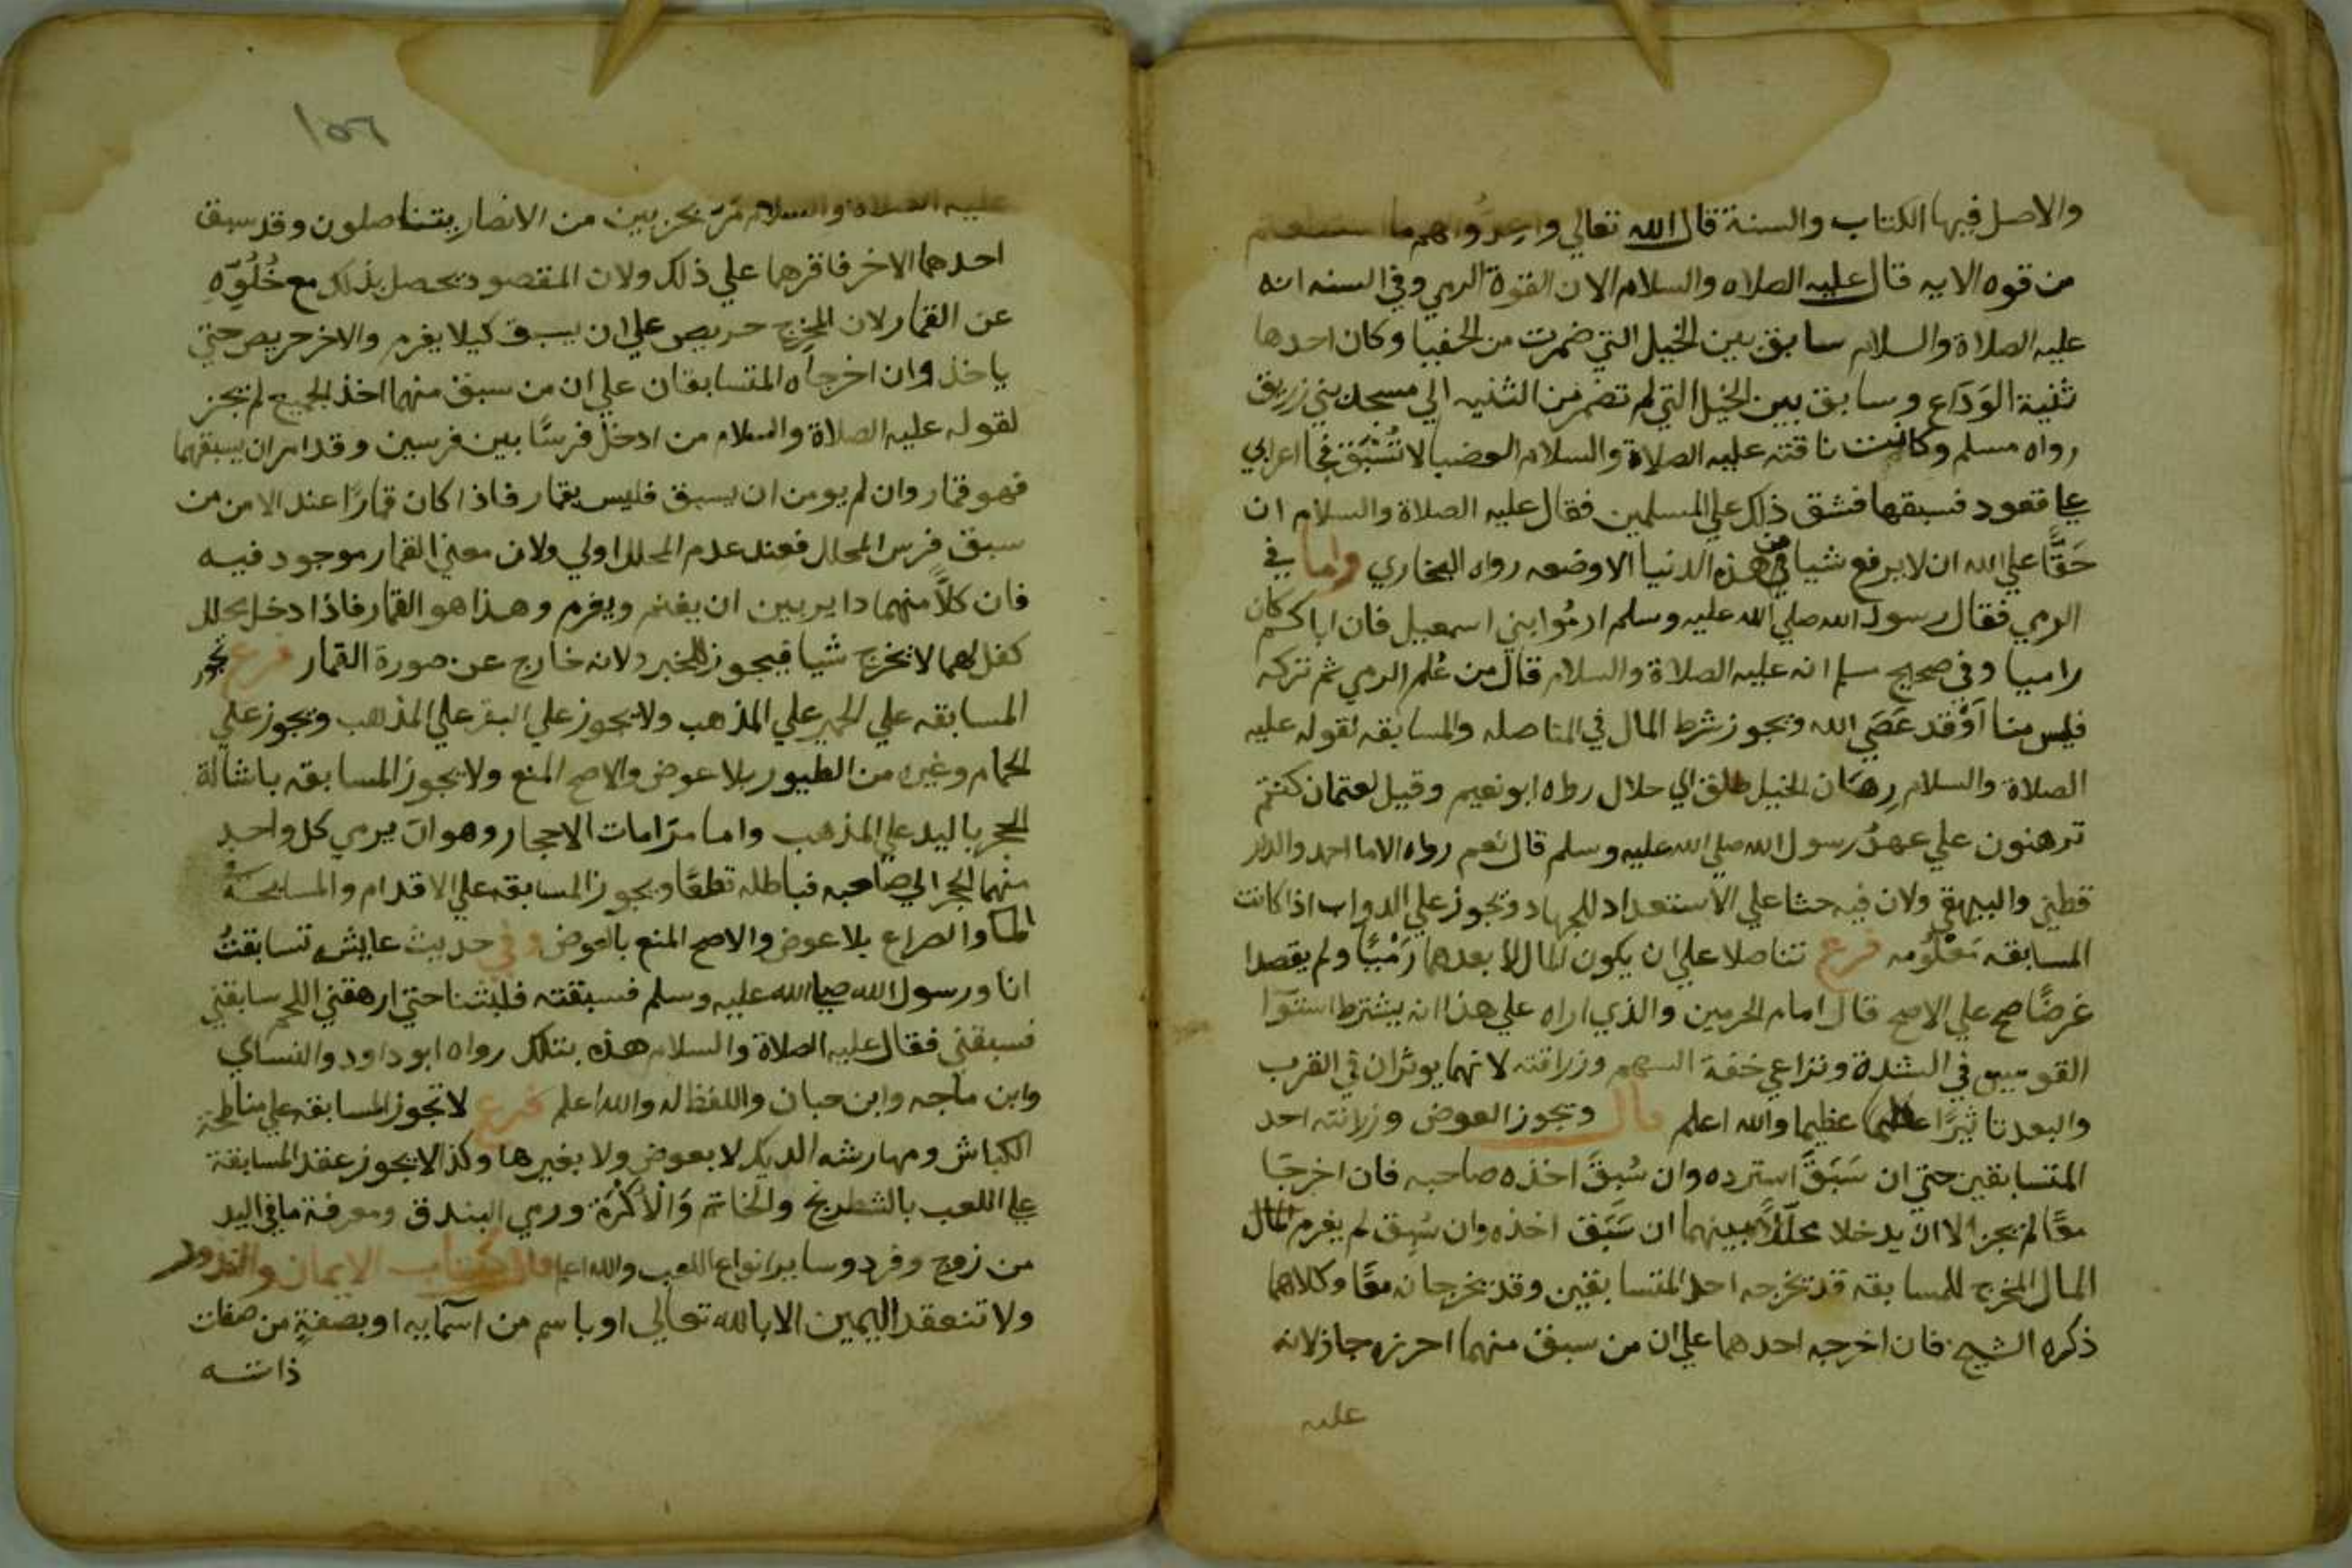 والاصل فيها الكتاب والسنة قال الله تعالي واعدوا لهم ما استطعتم
من قوه الايه قال عليه الصلاه والسلام الا ان القوة الرمي وفي السنه انه
عليه الصلاة والسلام سابق بين الخيل التي ضمرت من الحفيا وكان احدها
ثنية الوَدَاع وسابق بين الخيل التي لم تضمر من الثنيه الي مسجد بني زريق
رواه مسلم وكانت ناقته عليه الصلاة والسلام العضبا لا تُسْبَق فجا اعرابي
علي قعود فسبقها فشق ذلك علي المسلمين فقال عليه الصلاة والسلام ان
حَقًّا علي الله ان لا يرفع شيا من هذه الدنيا الا وضعه رواه البخاري واما في
الرمي فقال رسول الله صلي الله عليه وسلم ارمُوا بني اسمعيل فان اباكم كان
راميا وفي صحيح مسلم انه عليه الصلاة والسلام قال من عُلم الرمي ثم تركه
فليس منا اَوْ قد عَصَي الله ويجوز شرط المال في المناصله والمسابقه لقوله عليه
الصلاة والسلام رِهَان الخيل طلق اي حلال رواه ابو نعيم وقيل لعثمان كنتم
ترهنون علي عهد رسول الله صلي الله عليه وسلم قال نعم رواه الاما احمد والدار
قطني والبيهقي ولان فيه حثا علي الاستعداد للجهاد وتجوز علي الدواب اذا كانت
المسابقه مَعْلُومه فرع تناضلا علي ان يكون المال لا بعدهما رَمْيًا ولم يقصدا
غرضًا صح علي الاصح قال امام الحرمين والذي اراه علي هذا انه يشترط استوآ
القوسين في الشدة وتراعي خفة السهم ورزانته لانهما يوثران في القرب
والبعد تاثيرًا عظيما والله اعلم قال ويجوز العوض وزانته احد
المتسابقين حتي ان سَبَقَ استرده وان سُبِقَ اخذه صاحبه فان اخرجَا
معًا لم يجز الا ان يدخلا محَلّلًا بينهما ان سَبَق اخذه وان سُبِق لم يغرم المال
المال المخرج للمسابقه قد يخرجه احد المتسابقين وقد يخرجانه معًا وكلاهما
ذكره الشيخ فان اخرجه احدهما علي ان من سبق منهما احرزه جاز لانه
عليه
١٥٦
عليه الصلاة والسلام مَرّ بحزبين من الانصار يتناصلون وقد سبق
احدهما الاخر فاقرهما علي ذلك ولان المقصود يحصل بذلك مع خُلُوِّهِ
عن القمار لان المخرج حريص علي ان يسبق كيلا يغرم والاخر حريص حتي
ياخذ وان اخرجاه المتسابقان علي ان من سبق منهما اخذ الجميع لم يجز
لقوله عليه الصلاة والسلام من ادخل فرسًا بين فرسين وقد امن ان يسبقهما
فهو قمار وان لم يومن ان يسبق فليس بقمار فاذا كان قمارًا عند الامن من
سبق فرس المحلل فعند عدم المحلل اولي ولان معني القمار موجود فيه
فان كلاًّ منهما داير بين ان يغنم ويغرم وهذا هو القمار فاذا دخل محلل
كفل لهما لا يخرج شيا فيجوز للخبر ولانه خارج عن صورة القمار فرع تجوز
المسابقه علي الحمير علي المذهب ولا يجوز علي البقر علي المذهب ويجوز علي
الحمام وغيره من الطيور بلا عوض والاصح المنع ولا يجوز المسابقه باشالة
الحجر باليد علي المذهب واما مرَامات الاحجار وهو ان يرمي كل واحد
منهما الحجر الي صاحبه فباطله قطعًا ويجوز المسابقه علي الاقدام والمسابحة
الما والصراع بلا عوض والاصح المنع بالعوض وفي حديث عايشه تسابقتُ
انا ورسول الله صلي الله عليه وسلم فسبقته فلبثنا حتي ارهقني اللحم سابقني
فسبقني فقال عليه الصلاة والسلام هذه بتلك رواه ابو داود والنساي
وابن ماجه وابن حبان واللفظ له والله اعلم فرع لا تجوز المسابقه علي مناطحة
الكباش ومهارشه الديكه لا بعوض ولا بغيرها وكذا لا يجوز عقد المسابقة
علي اللعب بالشطرنج والخاتم وَالْاُكْرَة ورمي البندق ومعرفة ما في اليد
من زوج وفرد وساير انواع اللعب والله اعلم قال كتاب الايمان والنذور
ولا تنعقد اليمين الا بالله تعالي او باسم من اسمآيه او بصفةٍ من صفات
ذاته